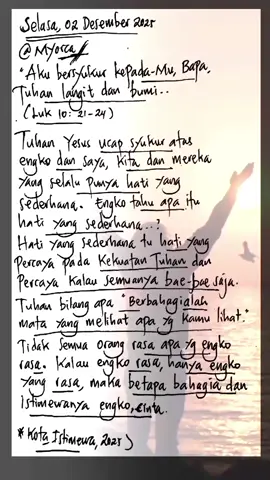 Selasa, 02 Desember 2025
@Myosca
"Aku bersyukur kepada-Mu, Bapa,
Tuhan langit dan bumi..
(Luk 10: 21-24)
Tuhan Yesus ucap syukur atas
engko dan saya, kita dan mereka
yang selalu punya hati yang
sederhana. Engko tahu apa itu
hati yang sederhana...?
Hati yang sederhana tu hati yang
Percaya pada kekuatan Tuhan dan
Percaya kalau semuanya bae-bae saja.
Tuhan bilang apa "Berbahagialah
mata yang melihat apa yg kamu lihat."
Tidak semua orang rasa apa yg engko
rasa. Kalau engko rasa, hanya engko
yang rasa, maka betapa bahagia dan
istimewanya engko, cinta.
*Kota Istimewa, 2025)